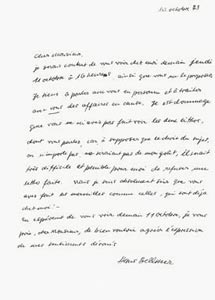 10 octobre
cher monsieur,
je serais content de vous voir chez moi demain jeudi
11 octobre à 16 heures ainsi que vous me le proposez
Je tiens à parler avec vous en personne et à traiter
avec vous des affaires en cause. Je est dommage
que vous ne m'ayez pas fait voir les deux lettres,
dont vous parlez, car à supposer que le choix du sujet,
ne soient pas de mon goût, il serait
très difficile et pénible pour moi de refuser une
telle faite. Mais je suis absolument sûr que vous
avez fait des merveilles comme celles, qui sont déjà
chez moi! -
En espérant de vous voir demain 11 octobre, je vous
prie, cher Monsieur, de bien vouloir agréer l'expression
de mes sentiments dévoués
Hans Bellmer